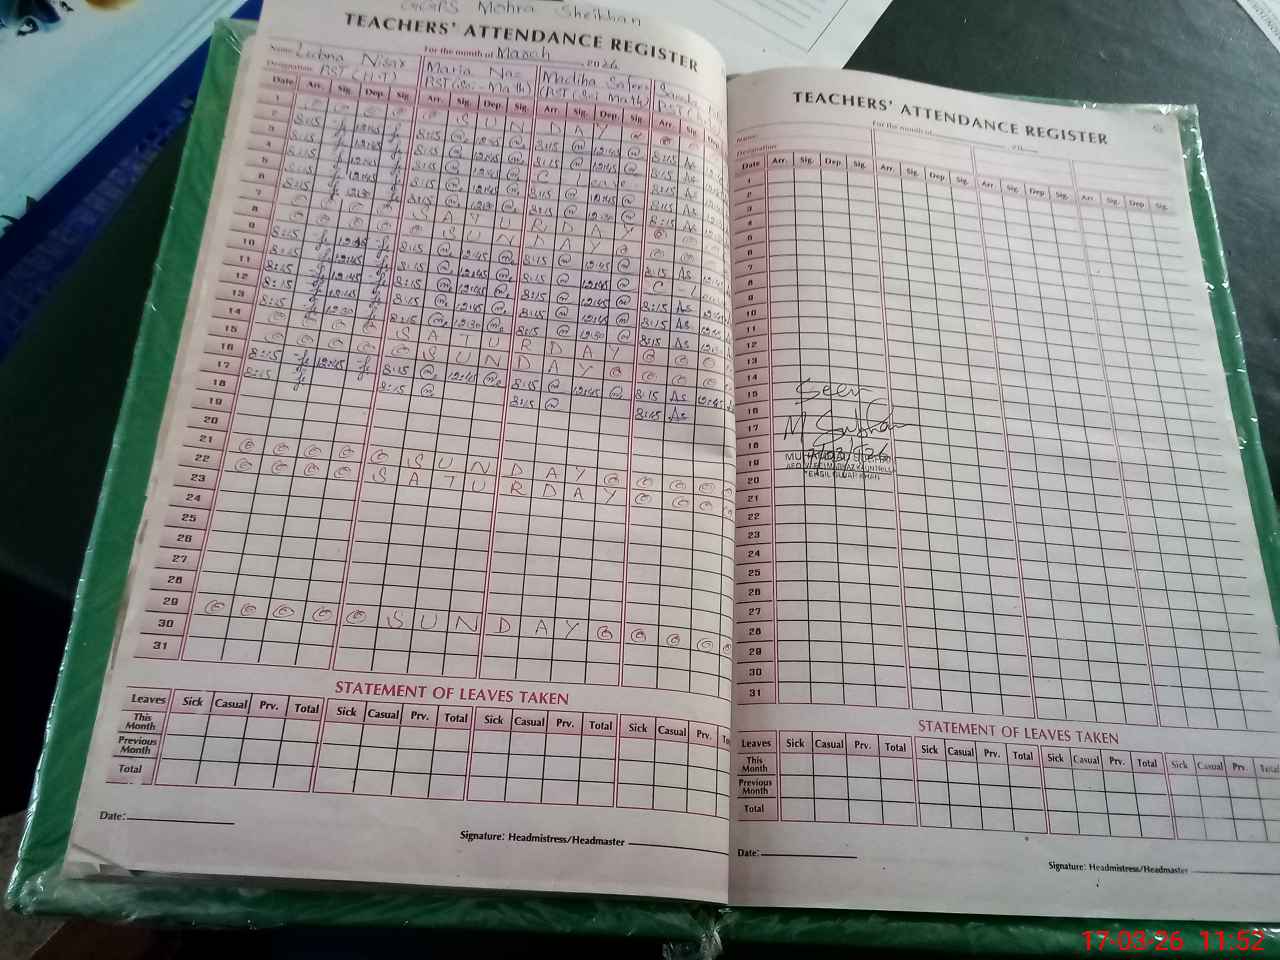 GGPS Mohra Sheikhan
TEACHERS' ATTENDANCE REGISTER
Name Lubna Nisar For the month of March 2026
Designation PST (H.T) Maria Naz PST (Sci Math) Madiha Safeer (PST Sci Math)
Date Arr. Sig. Dep. Sig. Arr. Sig. Dep. Sig. Arr. Sig. Dep. Sig. Arr. Sig.
1 SUNDAY
2 8:15 12:45 8:15 12:45 8:15 12:45 8:15 As
3 8:15 12:45 8:15 12:45 8:15 12:45 8:15 As
4 8:15 12:45 8:15 12:45
5 8:15 12:45 8:15 12:45 8:15 12:45 8:15 As
6 8:15 12:30 8:15 12:30 8:15 12:30 8:15 As
7 SATURDAY
8 SUNDAY
9 8:15 12:45 8:15 12:45 8:15 12:45 8:15 As
10 8:15 12:45 8:15 12:45 8:15 12:45
11 8:15 12:45 8:15 12:45 8:15 12:45 8:15 As
12 8:15 12:45 8:15 12:45 8:15 12:45 8:15 As
13 8:15 12:30 8:15 12:30 8:15 12:30 8:15 As
14 SATURDAY
15 SUNDAY
16 8:15 12:45 8:15 12:45 8:15 12:45 8:15 As 12:45
17 8:15 8:15 8:15 8:15 As
18
19
20
21
22 SUNDAY
23 SATURDAY
24
25
26
27
28
29 SUNDAY
30
31
STATEMENT OF LEAVES TAKEN
Leaves Sick Casual Prv. Total Sick Casual Prv. Total Sick Casual Prv. Total Sick Casual Prv.
This Month
Previous Month
Total
Date:
Signature: Headmistress/Headmaster
TEACHERS' ATTENDANCE REGISTER
Name: For the month of 20
Designation
Date Arr. Sig. Dep. Sig. Arr. Sig. Dep. Sig. Arr. Sig. Dep. Sig. Arr. Sig. Dep. Sig.
1
2
3
4
5
6
7
8
9
10
11
12
13
14
15
16
17
18
19
20
21
22
23
24
25
26
27
28
29
30
31
Seen
STATEMENT OF LEAVES TAKEN
Leaves Sick Casual Prv. Total Sick Casual Prv. Total Sick Casual Prv. Total Sick Casual Prv. Total
This Month
Previous Month
Total
Date:
Signature: Headmistress/Headmaster
17-03-26 11:52